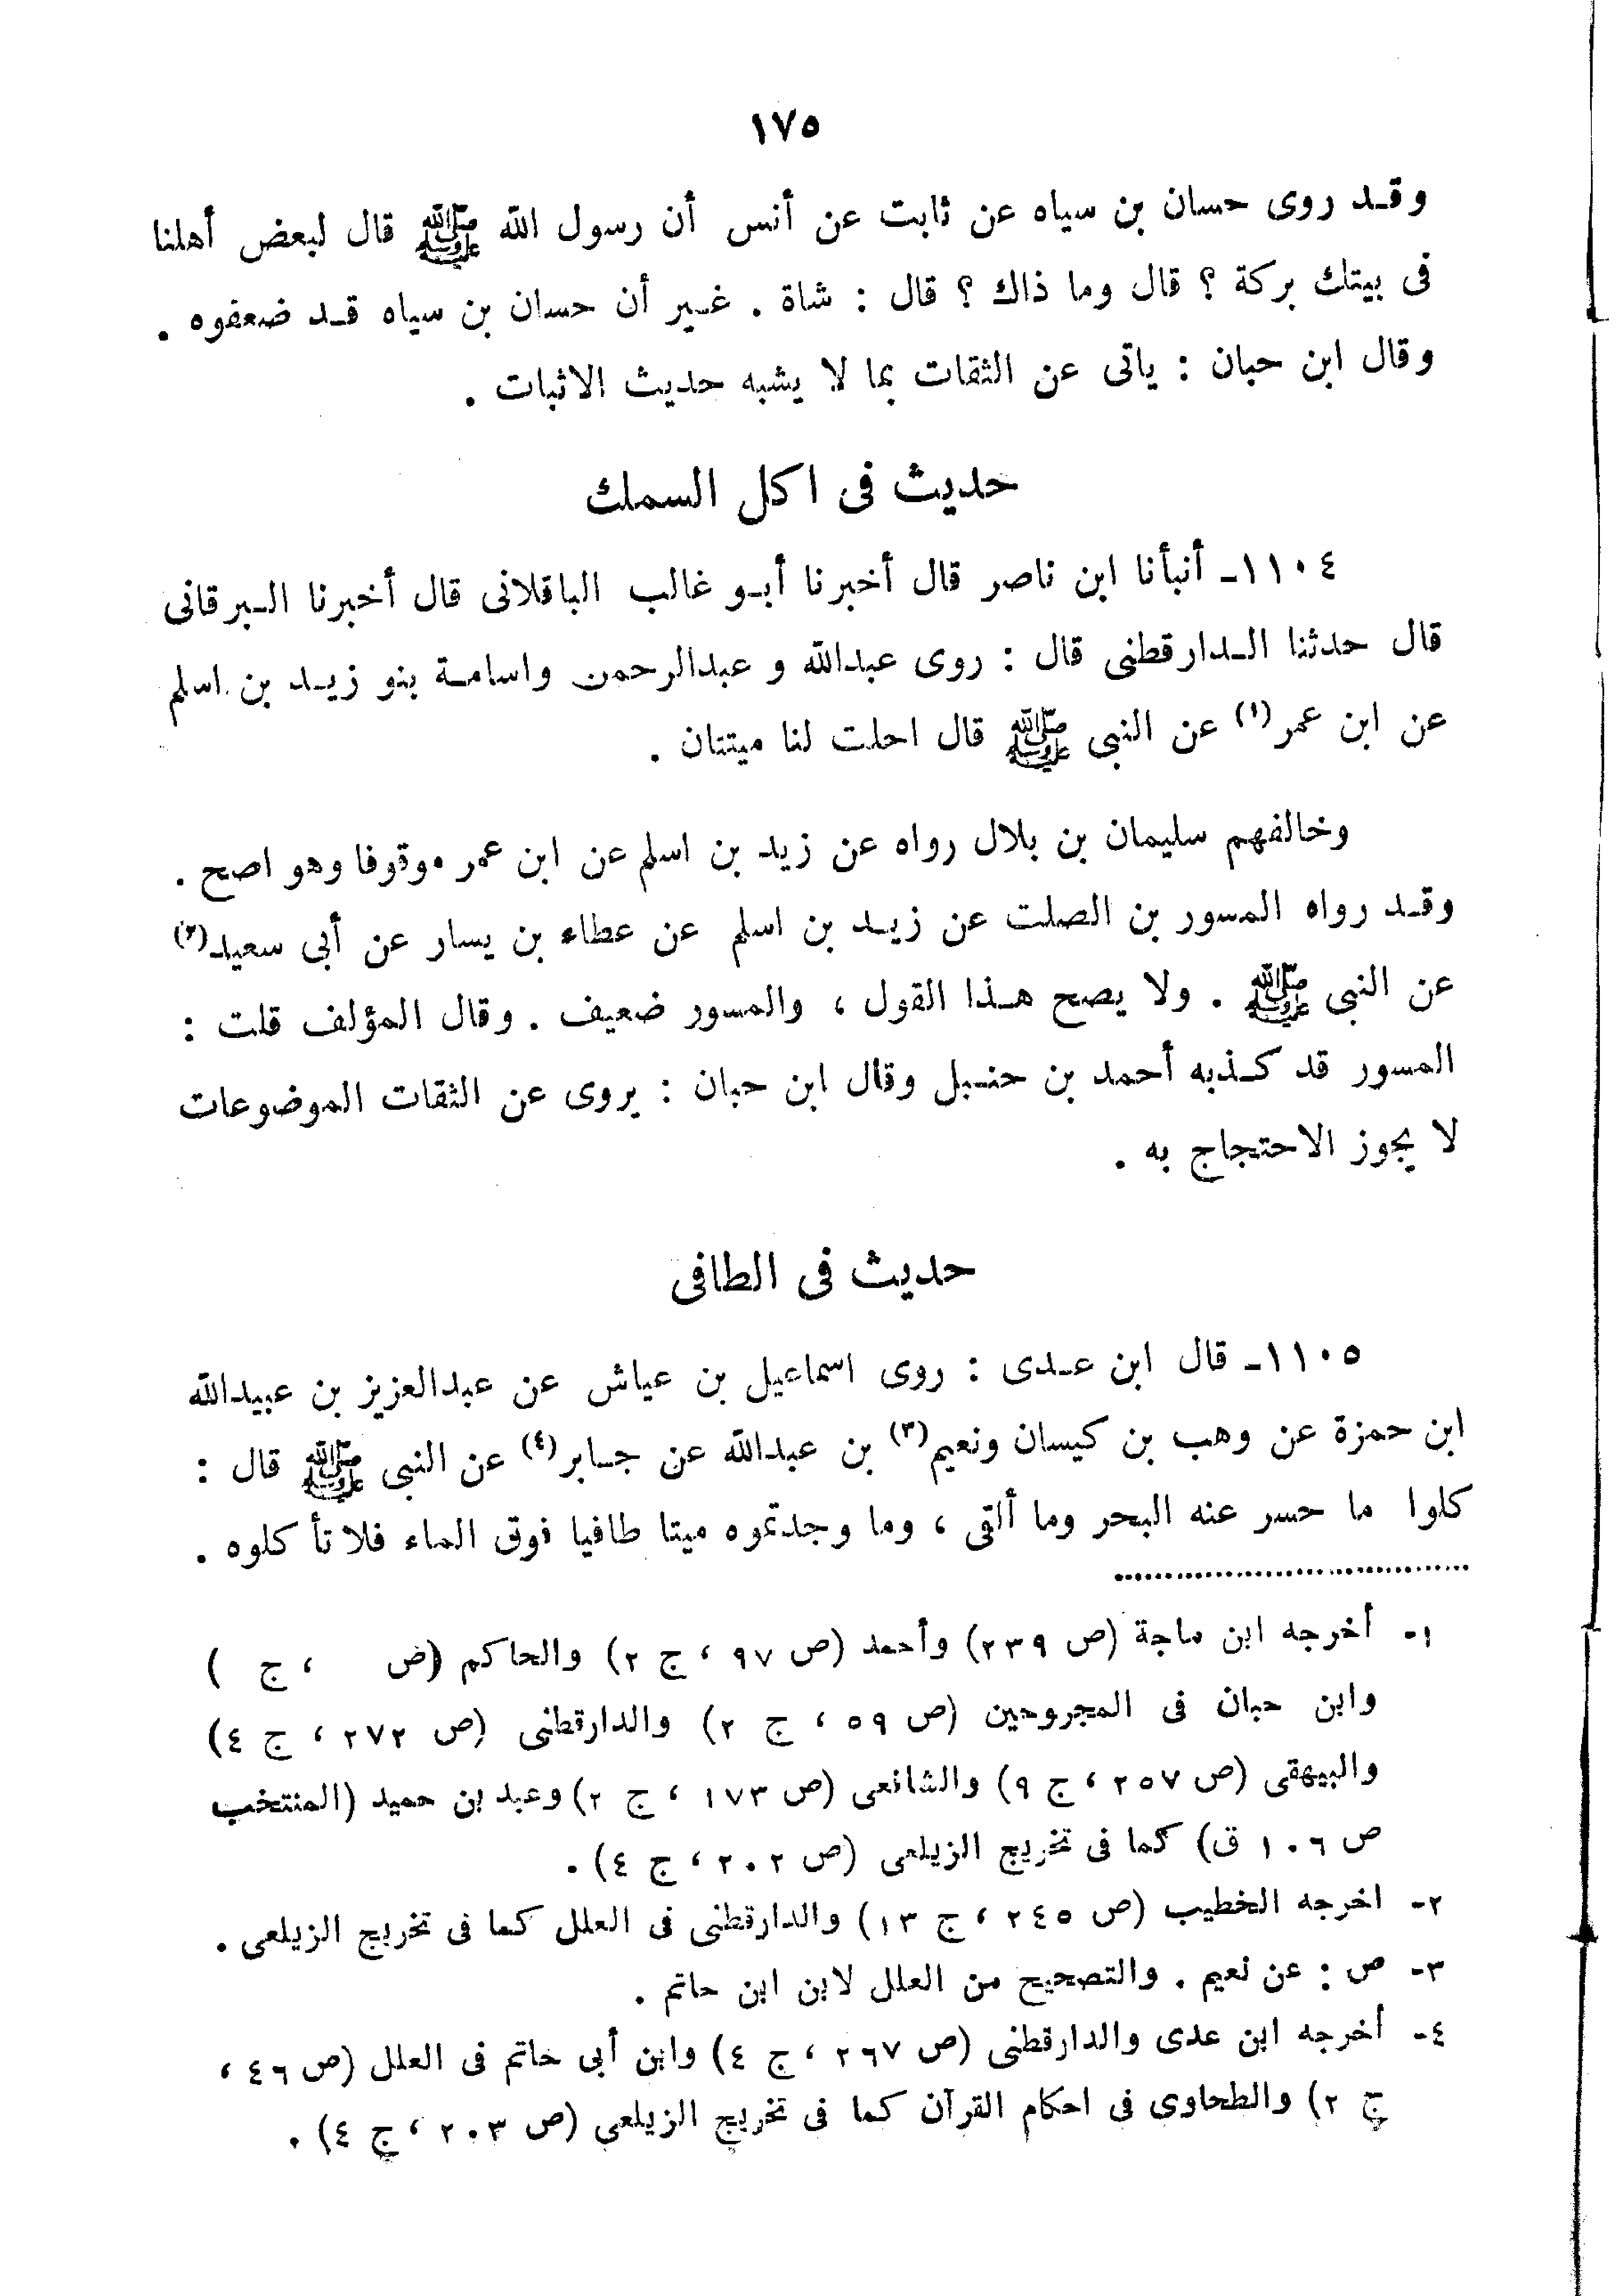 ١٧٥
وقـد روى حسان بن سياه عن ثابت عن أنس أن رسول الله ﷺ قال لبعض أهلنا
فى بيتك بركة ؟ قال وما ذاك ؟ قال : شاة . غـير أن حسان بن سياه قـد ضعفوه .
وقال ابن حبان : ياتى عن الثقات بما لا يشبه حديث الاثبات .
حديث فى اكل السمك
١١٠٤ـ أنبأنا ابن ناصر قال أخبرنا أبـو غالب الباقلانى قال أخبرنا الـبرقانى
قال حدثنا الـدارقطنى قال : روى عبدالله و عبدالرحمن واسامـة بنو زيـد بن اسلم
عن ابن عمر(١) عن النبى ﷺ قال احلت لنا ميتتان .
وخالفهم سليمان بن بلال رواه عن زيد بن اسلم عن ابن عمر موقوفا وهو اصح .
وقـد رواه المسور بن الصلت عن زيـد بن اسلم عن عطاء بن يسار عن أبى سعيد(٢)
عن النبى ﷺ . ولا يصح هـذا القول ، والمسور ضعيف . وقال المؤلف قلت :
المسور قد كـذبه أحمد بن حنـبل وقال ابن حبان : يروى عن الثقات الموضوعات
لا يجوز الاحتجاج به .
حديث فى الطافى
١١٠٥ـ قال ابن عـدى : روى اسماعيل بن عياش عن عبدالعزيز بن عبيدالله
ابن حمزة عن وهب بن كيسان ونعيم(٣) بن عبدالله عن جـابر(٤) عن النبى ﷺ قال :
كلوا ما حسر عنه البحر وما ألقى ، وما وجدتموه ميتا طافيا فوق الماء فلا تأكلوه .
١ـ أخرجه ابن ماجة (ص ٢٣٩) وأحمد (ص ٩٧ ، ج ٢) والحاكم (ص ، ج )
وابن حبان فى المجروحين (ص ٥٩ ، ج ٢) والدارقطنى (ص ٢٧٢ ، ج ٤)
والبيهقى (ص ٢٥٧ ، ج ٩) والشافعى (ص ١٧٣ ، ج ٢) وعبد بن حميد (المنتخب
ص ١٠٦ ق) كما فى تخريج الزيلعى (ص ٢٠٢ ، ج ٤) .
٢ـ اخرجه الخطيب (ص ٢٤٥ ، ج ١٣) والدارقطنى فى العلل كما فى تخريج الزيلعى .
٣ـ ص : عن نعيم . والتصحيح من العلل لابن ابن حاتم .
٤ـ أخرجه ابن عدى والدارقطنى (ص ٢٦٧ ، ج ٤) وابن أبى حاتم فى العلل (ص ٤٦ ،
ج ٢) والطحاوى فى احكام القرآن كما فى تخريج الزيلعى (ص ٢٠٣ ، ج ٤) .